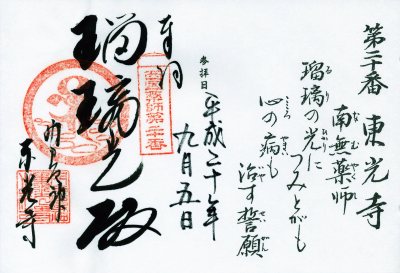 第二十番 東光寺
南無薬師
瑠璃の光に
つみとがも
心の病も
治す誓願
参拝日
平成二十年
九月五日
奉拝
瑠璃光殿
東光寺